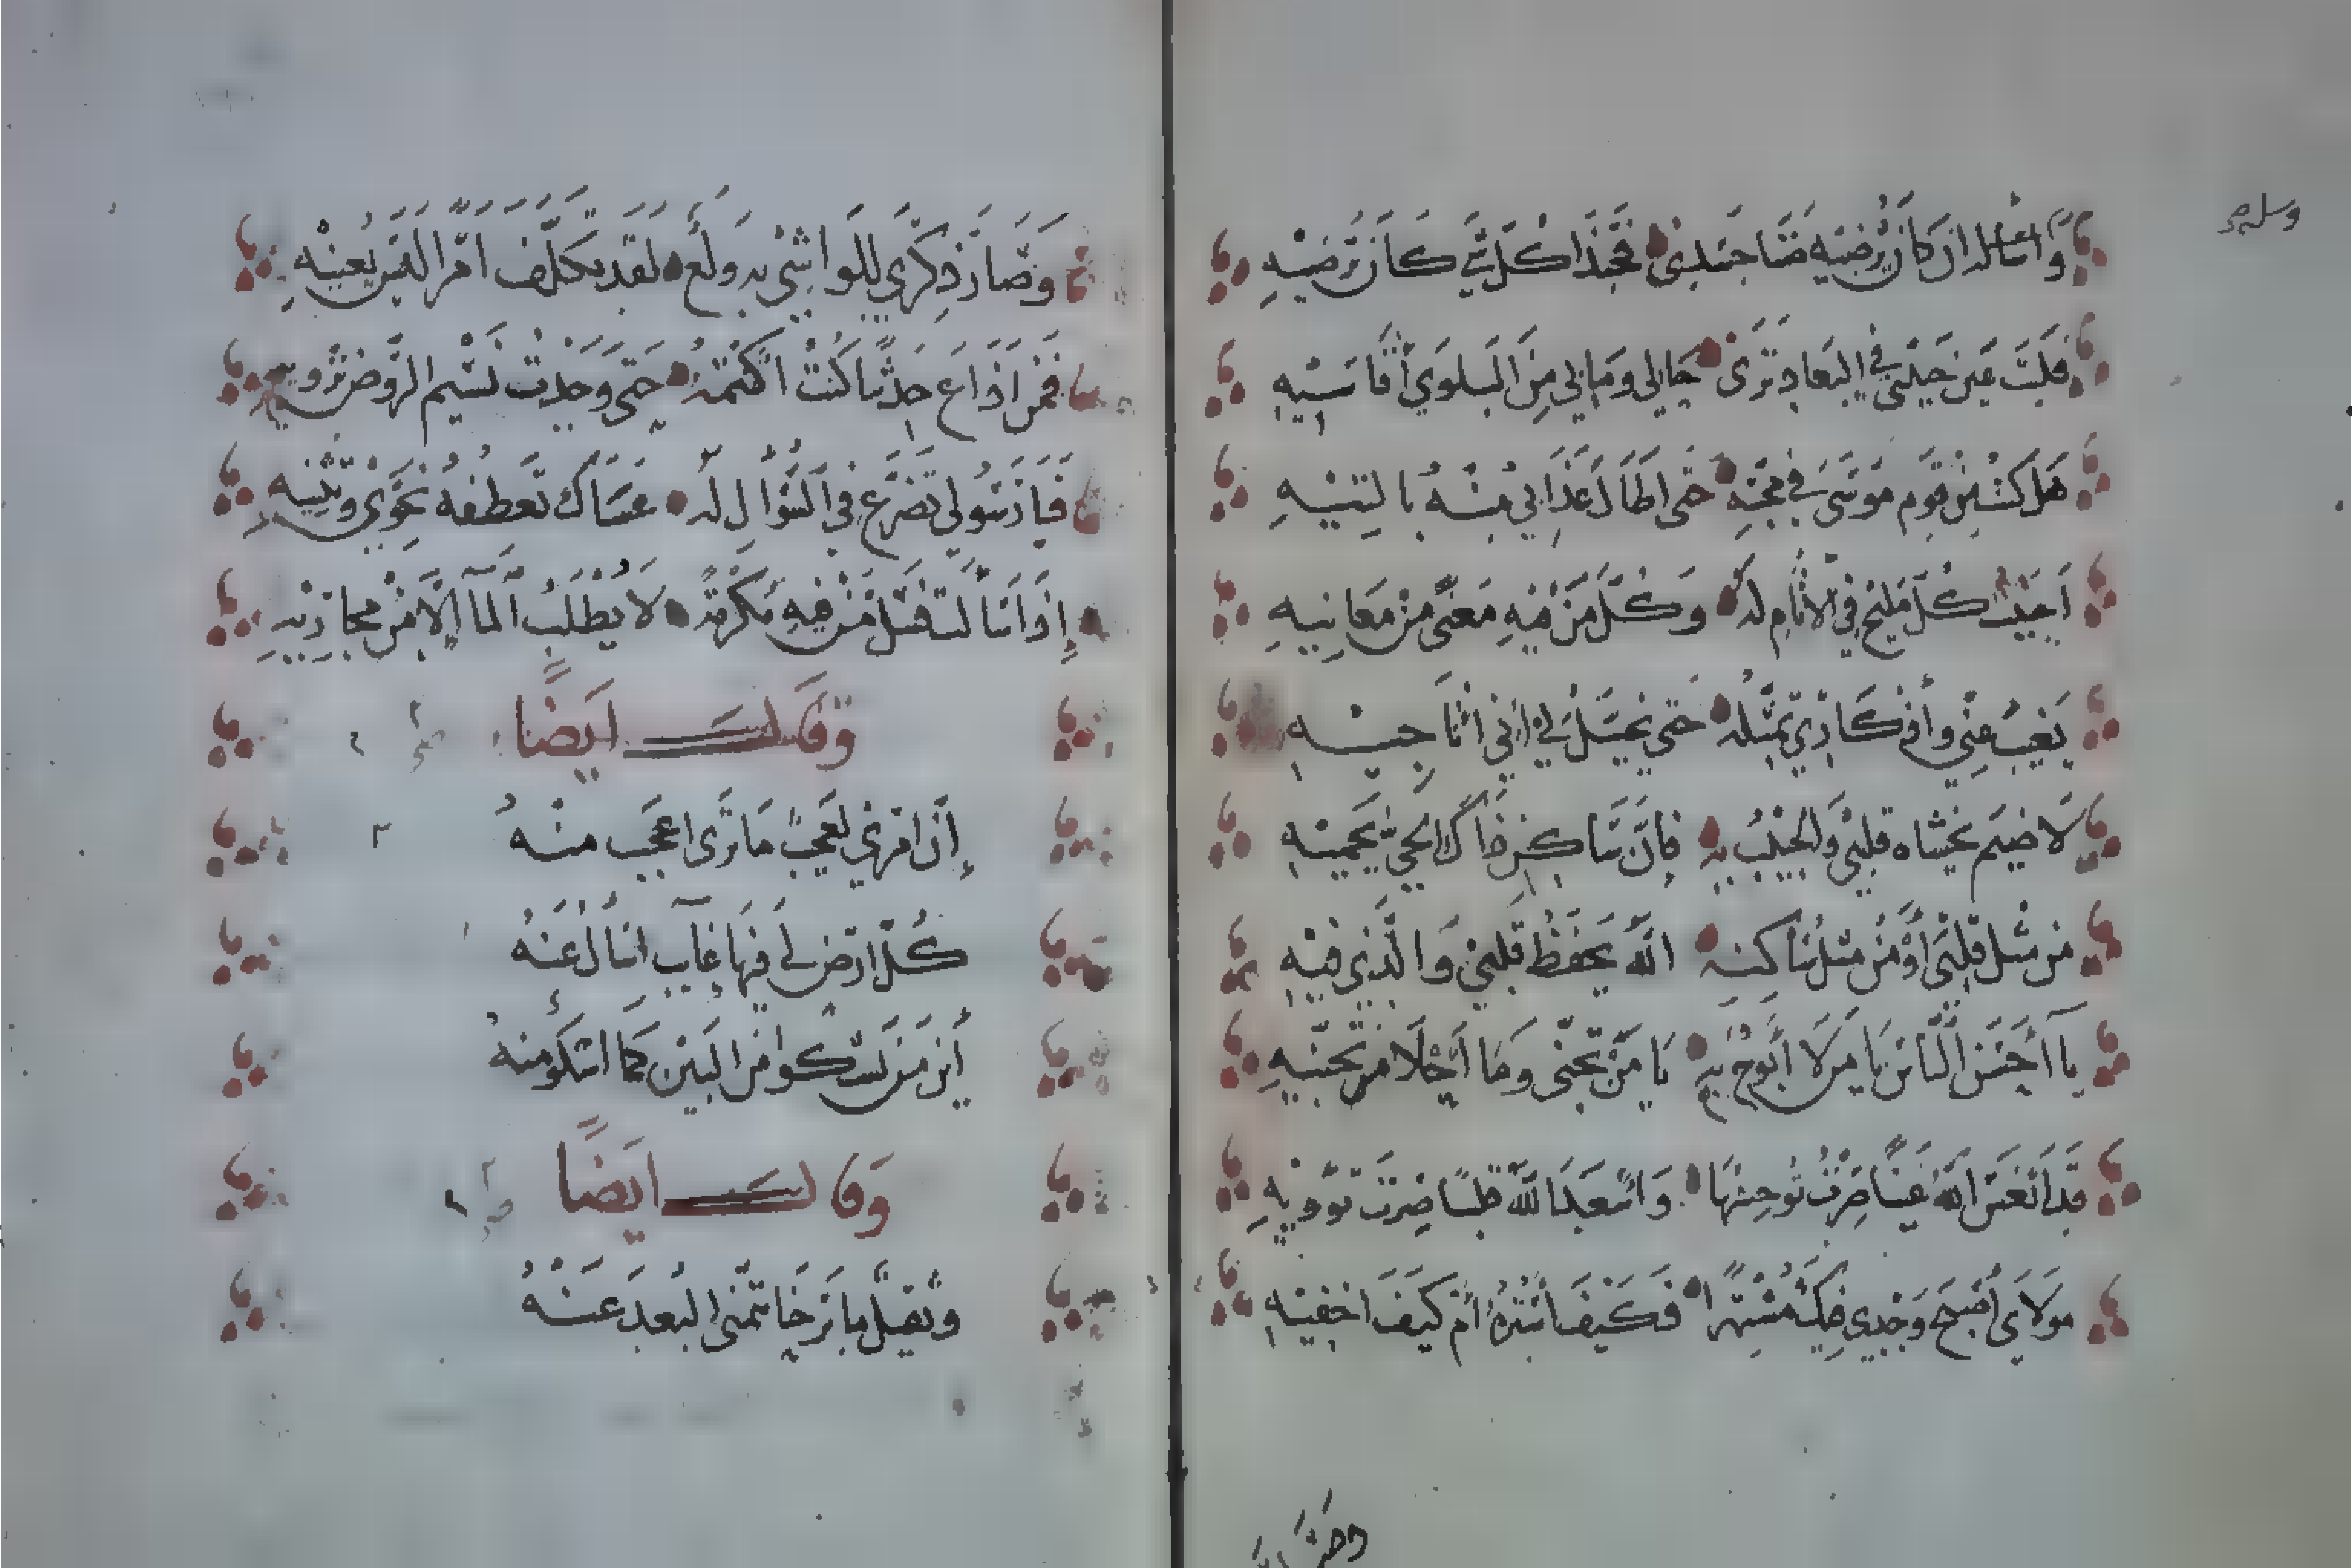 وسله
وَاسأله ان كانَ يُرْضيه ضَنَا جَسَدِي فَحَبَّذَا كلّ شَيْ كانَ يُرْضِيْهِ
فليتَ عَينَ حَبيْبي في البعاد تَرَى حَالي وَمَا بي مِنَ البَلوَي أُقَاسِيْهِ
هَل كنتُ مِنْ قَوم مُوسَى في محبَّتِهِ حَتّى اطَالَ عَذَابي مِنْهُ بالتِيْهِ
اُحِبُّ كُلَّ مَليْحٍ في الانَامِ لَهُ وَكُلّ مَنْ فيْهِ مَعنًى مِنْ مَعَانِيهِ
يَغيبُ عنّي وأفكَاري تمثّلهُ حَتّى يُخيَّلَ لي أني أُنَاجيْهِ
لَا ضَيمَ يَخشَاه قلبي وَالحَبيْبُ بهِ فإنَّ سَاكنَ ذَاكَ الحَيّ يَحْمِيْهِ
مَن مثل قلبي أوْ مَنْ مثلُ سَاكنهِ اللّه يحفَظُ قلبي وَالَّذي فيْهِ
يَا أَحسَنَ النَّاسِ يَا مَن لَا أَبُوحُ بهِ يَا مَنْ تجنّى وَمَا أَحْلَا تجنّيْهِ
قد أَتعَسَ اللّه عَيْنًا صرْتَ تُوحِشُهَا وَاسْعَدَ اللّه قلبًا صرْتَ تؤويْهِ
مَولَايَ أَصْبَحَ وَجْدِي فيكَ مُشْتَهِرًا فكَيْفَ أَسْتُرهُ أَمْ كيْفَ اخْفِيْهِ
وصَار
وَصَارَ ذِكْري لِلوَاشِيْ بهِ وَلَعٌ لقَد تكلّفَ امْرًا ليْسَ يَعْنيْهِ
فمَنْ اذَاعَ حَديْثًا كُنْتُ اكْتُمُهُ حَتّى وَجَدْتُ نَسِيْمَ الرَّوض يَرْويهِ
فيَا رَسُولي تَضَرَّعْ في السُّؤَالِ لَهُ عَسَاكَ تَعْطِفهُ نَحْوي وَتَثْنِيْهِ
إِذَا سَألتَ فسَلْ مَنْ فيهِ مَكْرمَةٌ لَا يُطْلَبُ المَا إلَّا مِنْ مجَارِيْهِ
وَقَالَ ايَضًا
إنّ امْري لعَجيبٌ مَا تَرَى اعْجَب منْهُ
كُلّ ارْض لي فيْهَا غَايب اسْأَلُ عَنْهُ
أيْنَ مَن يَشْكوا مِنَ البَيْن كَمَا اشكُو منهُ
وَقَالَ ايَضًا
وَثقيْل مَا بَرِحْنَا نَتَمنّى البُعْدَ عَنْهُ